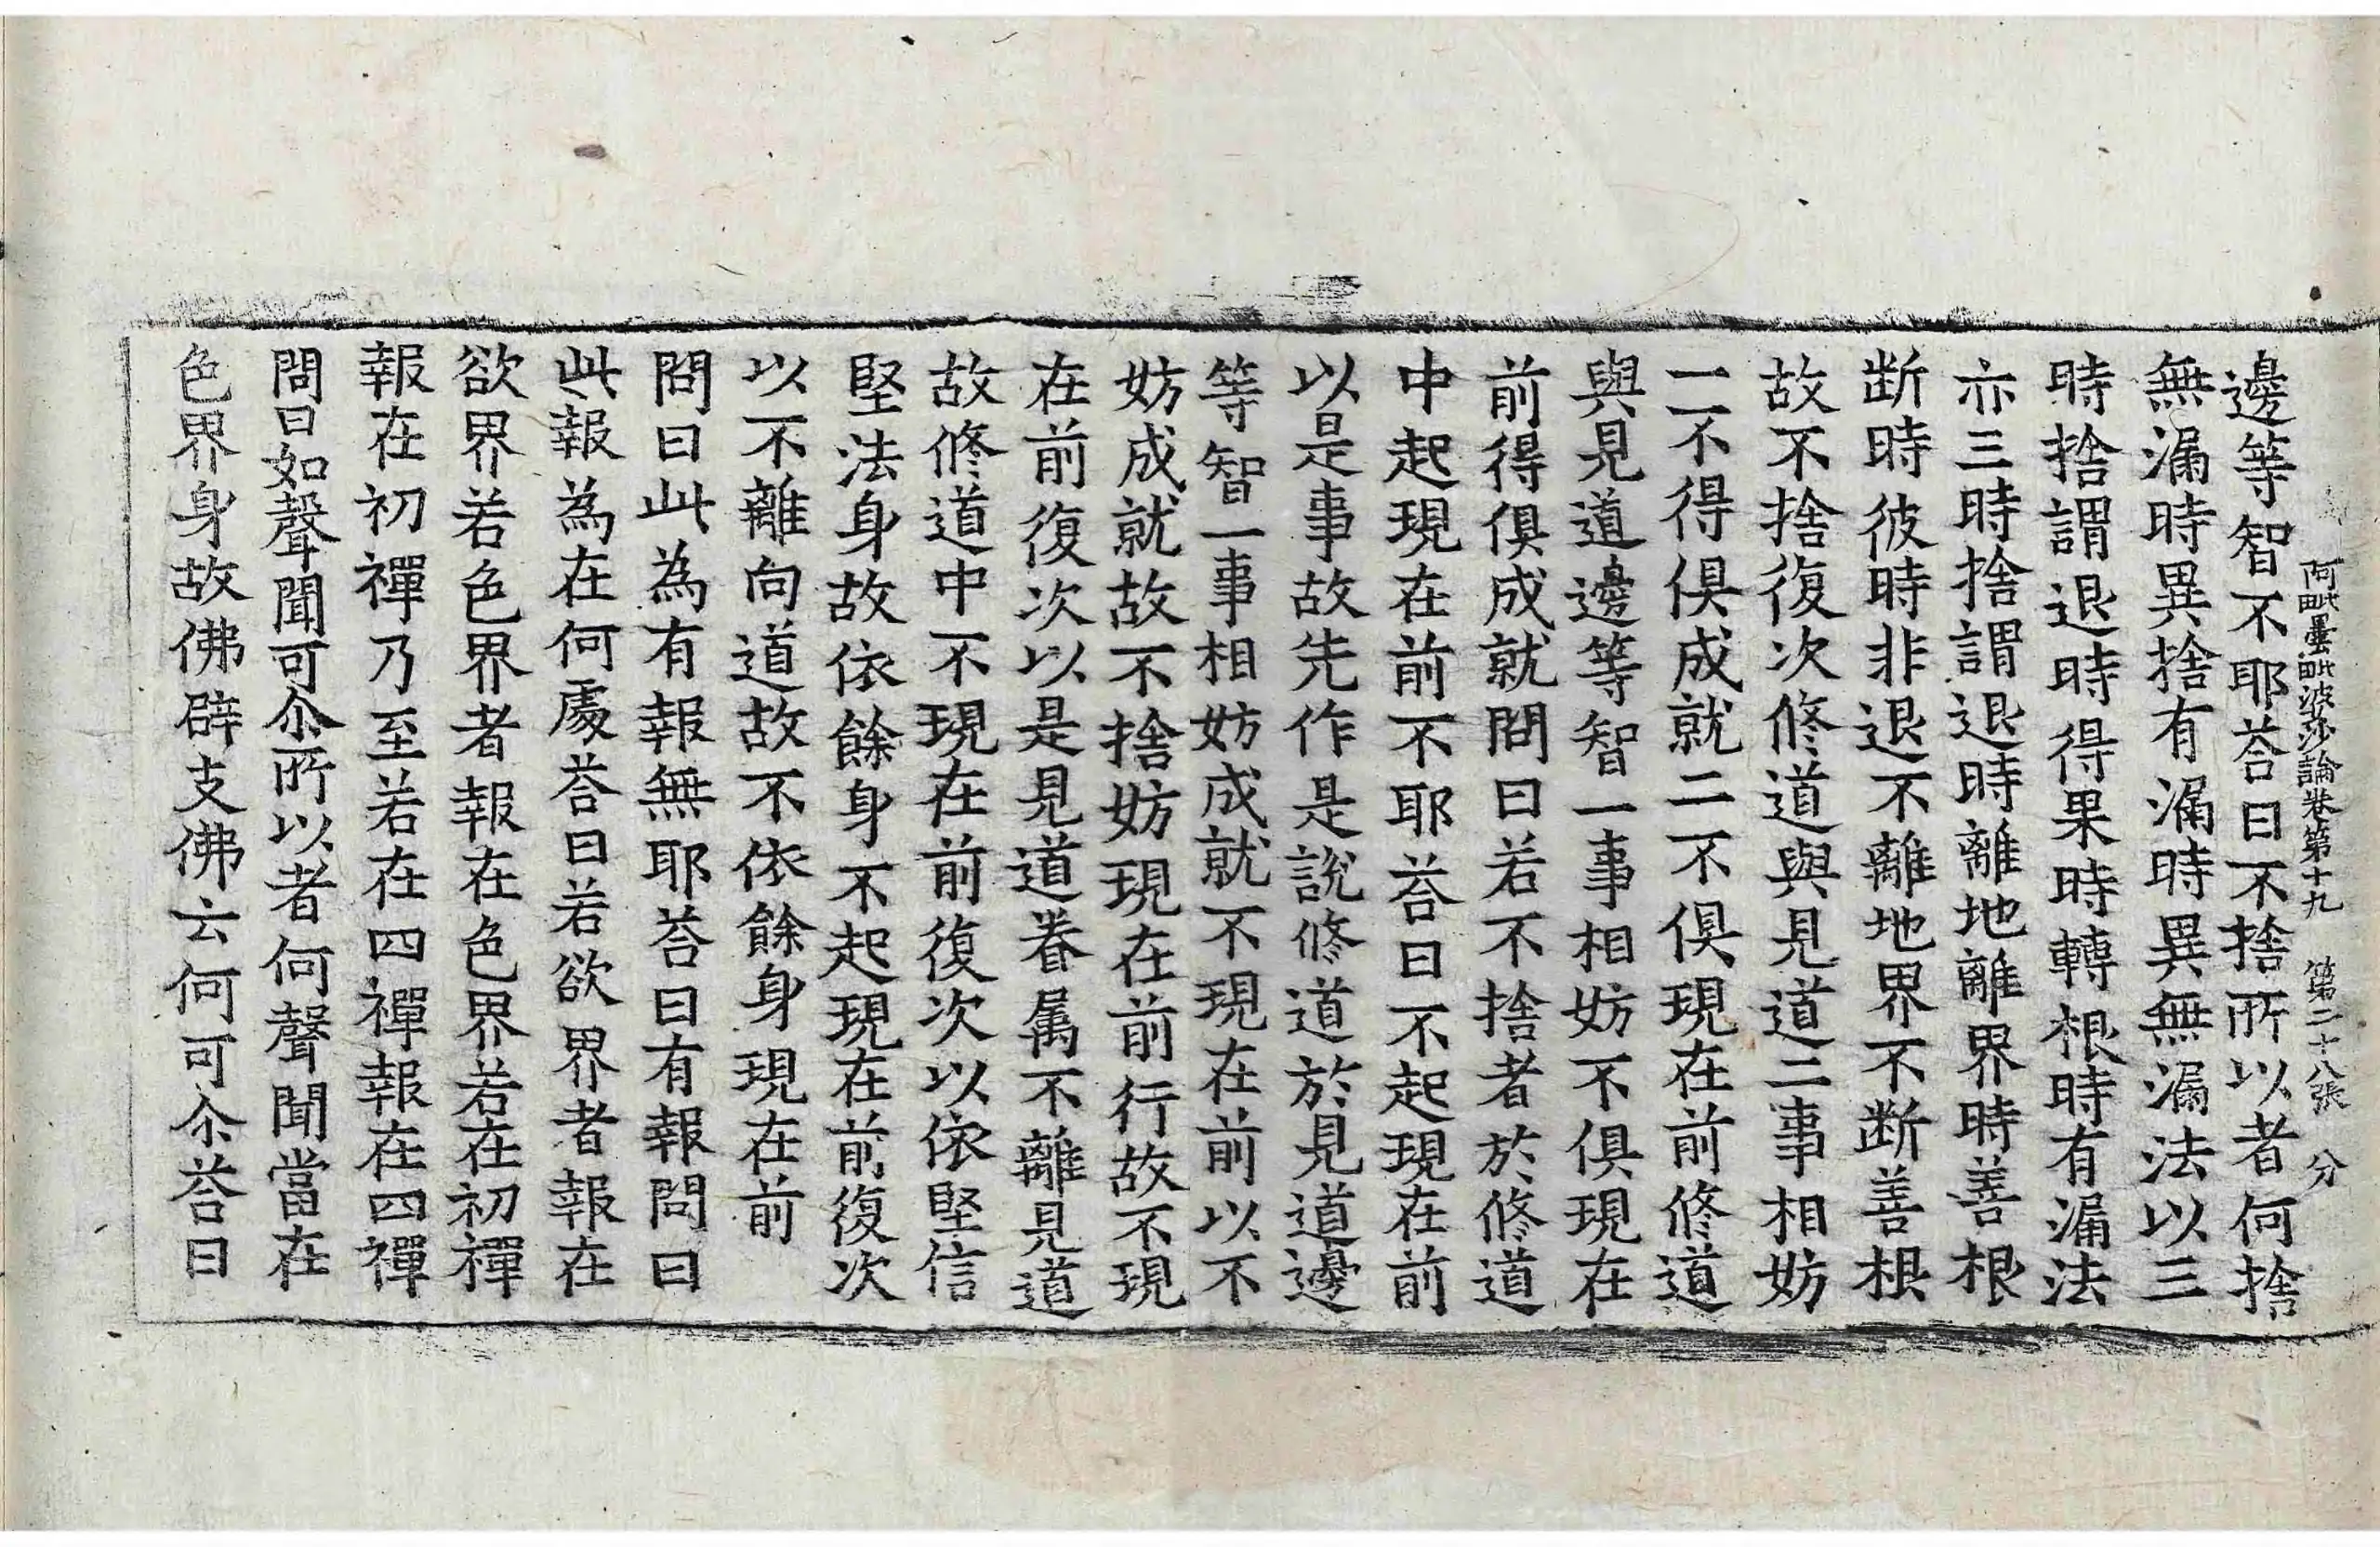 阿毗曇毗波沙論卷第十九 第二十八張 分
邊等智不耶荅曰不捨所以者何捨
無漏時異捨有漏時異無漏法以三
時捨謂退時得果時轉根時有漏法
亦三時捨謂退時離地離界時善根
断時彼時非退不離地界不断善根
故不捨復次修道與見道二事相妨
一不得俱成就二不俱現在前修道
與見道邊等智一事相妨不俱現在
前得俱成就問曰若不捨者於修道
中起現在前不耶荅曰不起現在前
以是事故先作是說修道於見道邊
等智一事相妨成就不現在前以不
妨成就故不捨妨現在前行故不現
在前復次以是見道眷属不離見道
故修道中不現在前復次以依堅信
堅法身故依餘身不起現在前復次
以不離向道故不依餘身現在前
問曰此為有報無耶荅曰有報問曰
此報為在何處荅曰若欲界者報在
欲界若色界者報在色界若在初禪
報在初禪乃至若在四禪報在四禪
問曰如聲聞可尒所以者何聲聞當在
色界身故佛辟支佛云何可尒荅曰